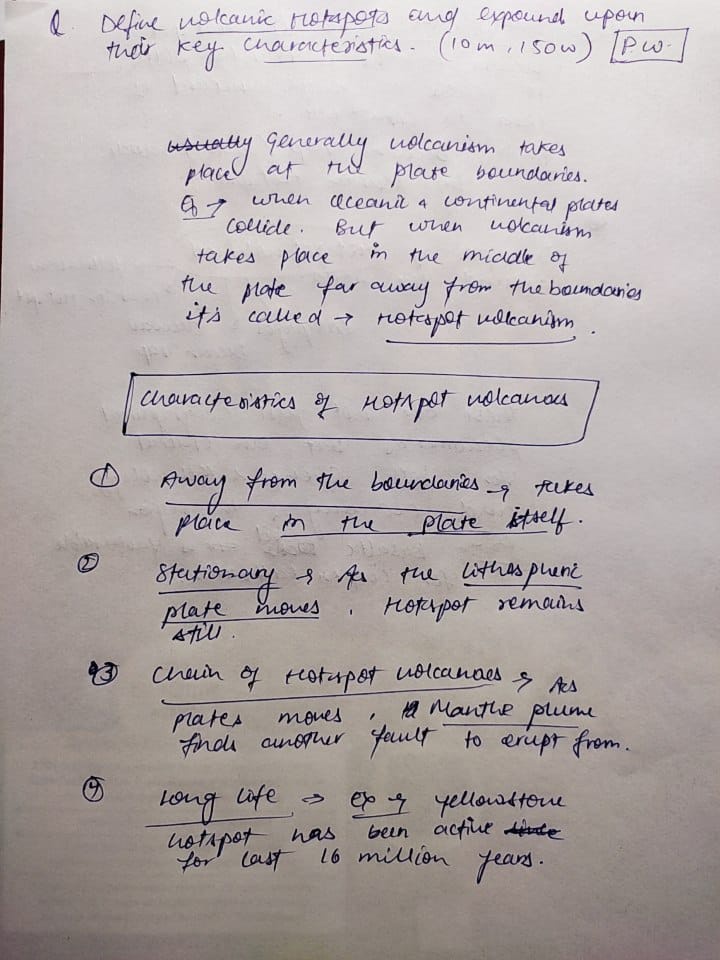 Q. Define volcanic Hotspots and expound upon
their key characteristics. (10m, 150w) [P.W.]
usually Generally volcanism takes
place at the plate boundaries.
Eg → when oceanic & continental plates
collide. But when volcanism
takes place in the middle of
the plate far away from the boundaries
it's called → Hotspot volcanism.
Characteristics of Hotspot volcanoes
① Away from the boundaries → takes
place in the plate itself.
② Stationary → As the lithospheric
plate moves, Hotspot remains
still.
③ Chain of Hotspot volcanoes → As
plates moves, Manthe plume
finds another fault to erupt from.
④ Long life → Ex → yellowstone
hotspot has been active since
for last 16 million years.